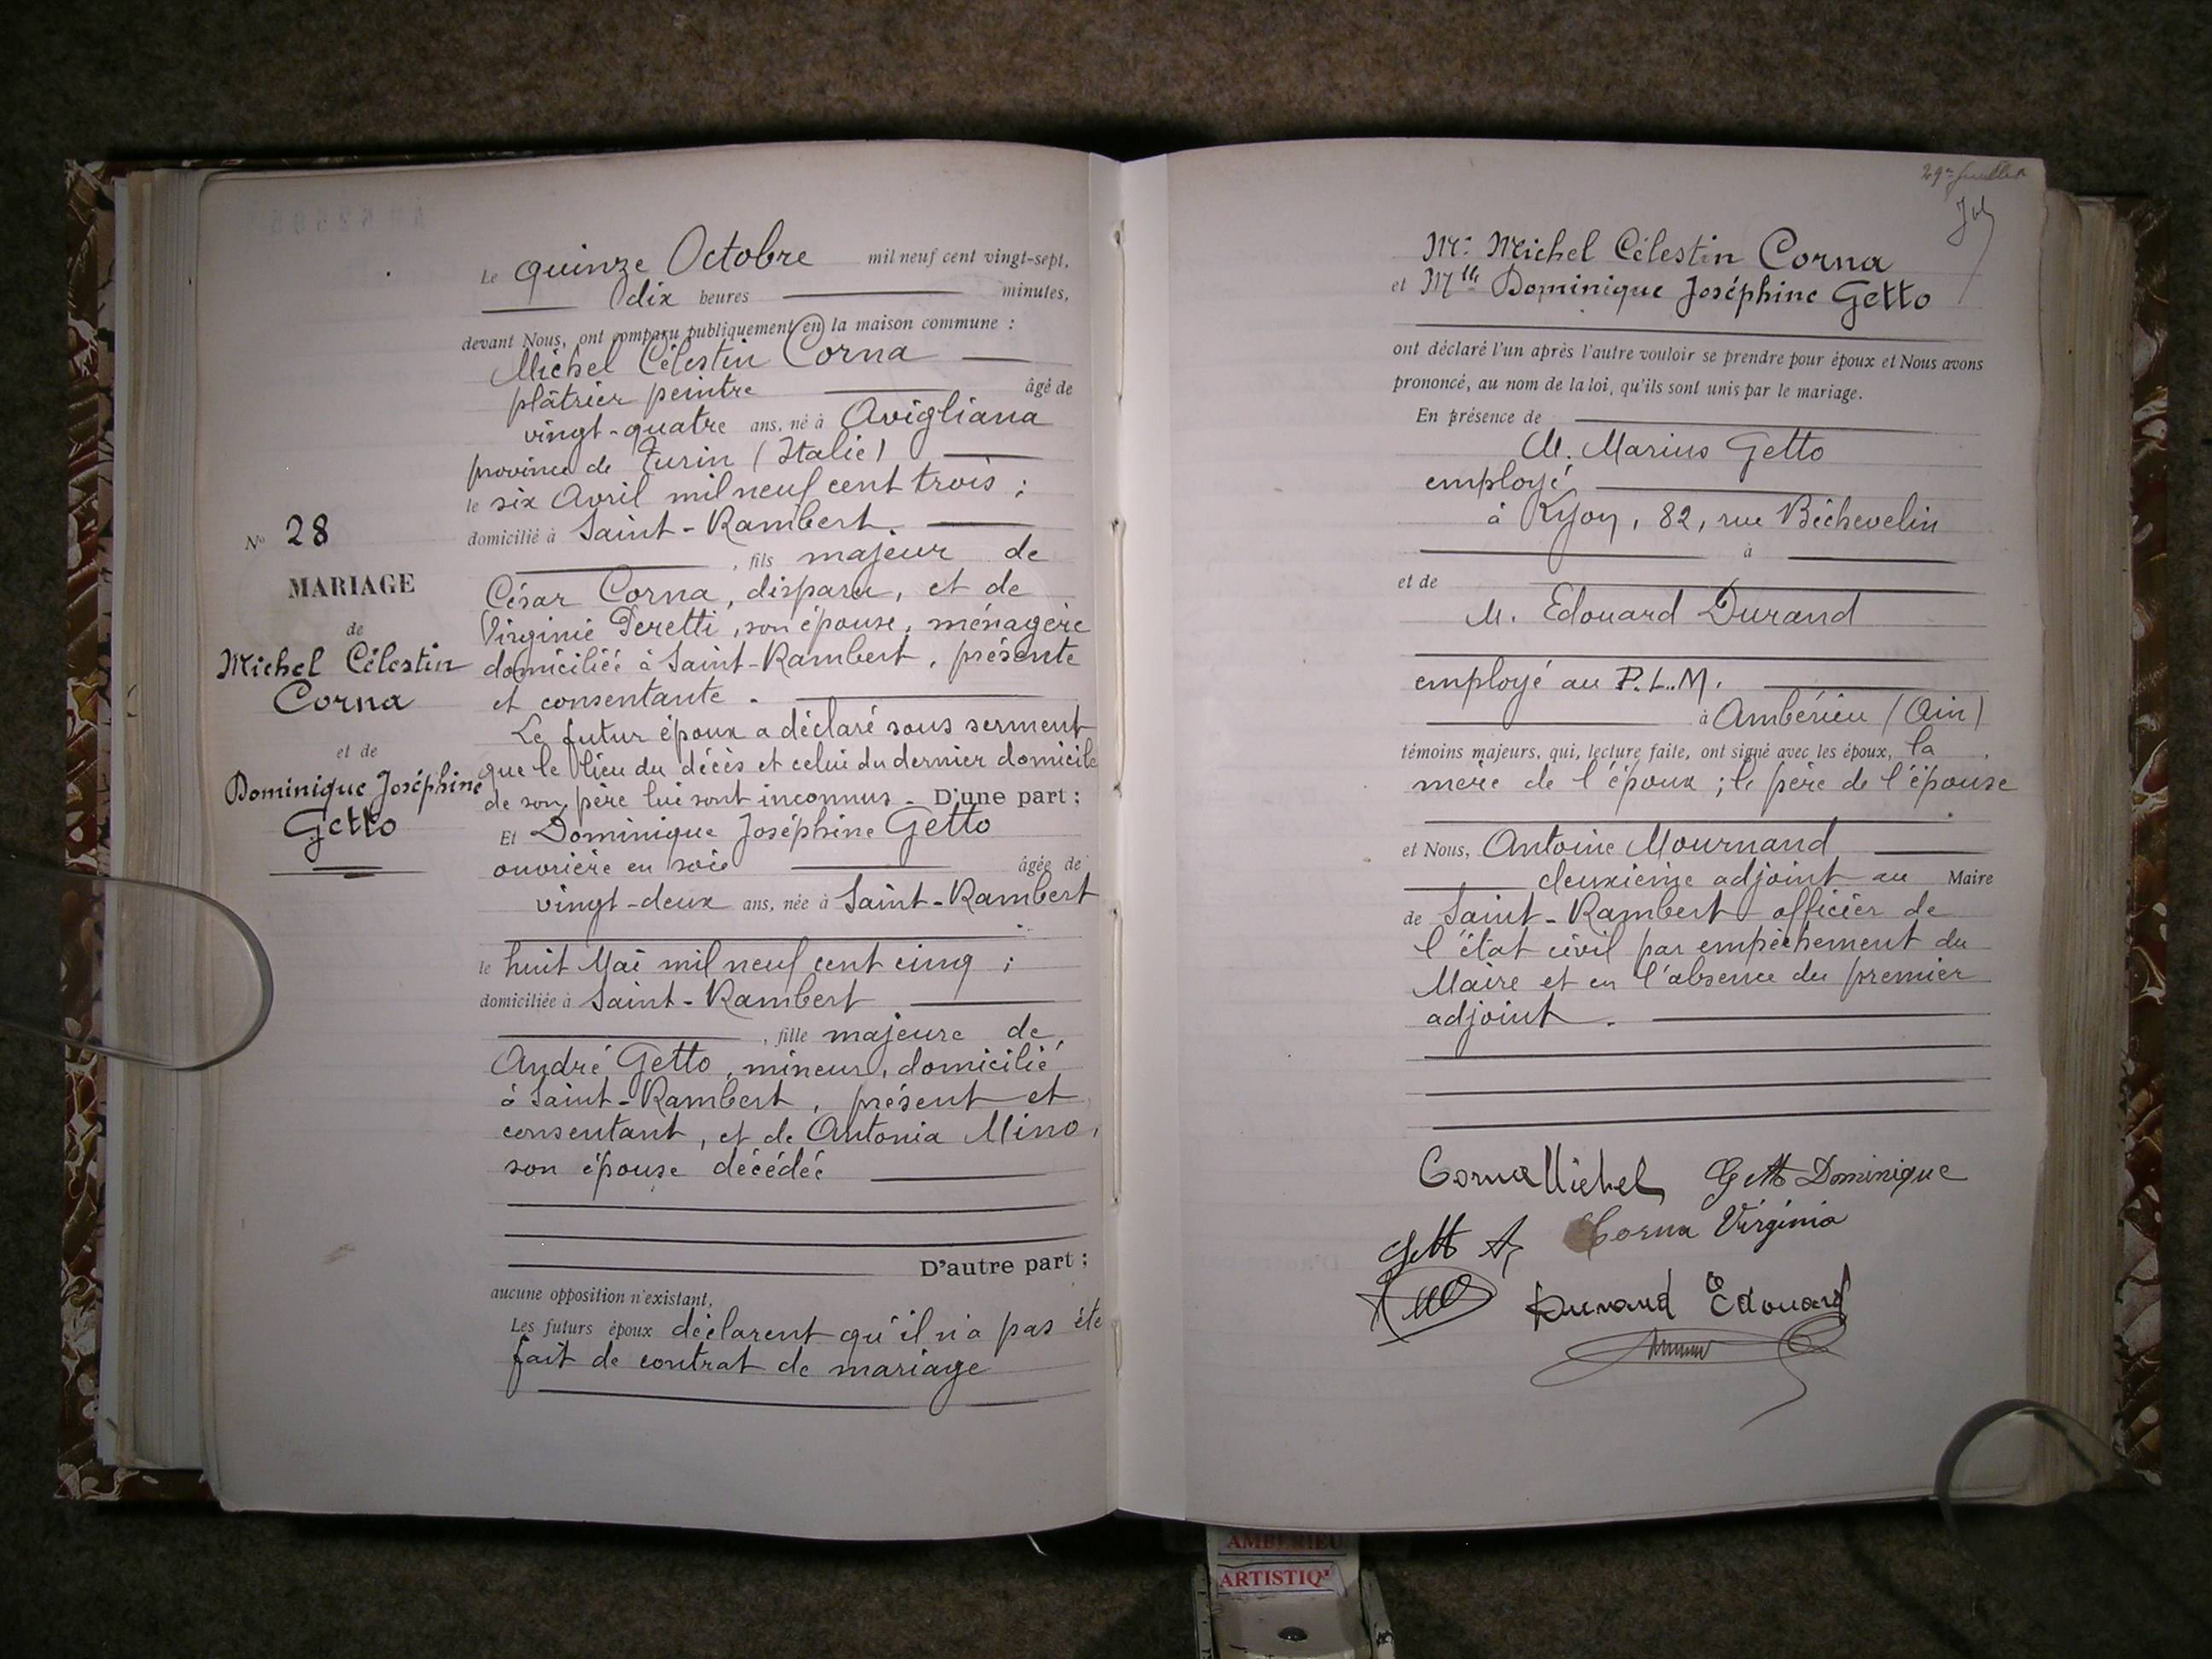 Le quinze Octobre mil neuf cent vingt-sept,
dix heures minutes,
devant Nous, ont comparu publiquement en la maison commune :
Michel Célestin Corna
plâtrier peintre âgé de
vingt-quatre ans, né à Avigliana
province de Turin (Italie)
le six Avril mil neuf cent trois ;
domicilié à Saint-Rambert
, fils majeur de
César Corna, disparu, et de
Virginie Peretti, son épouse, ménagère
domiciliée à Saint-Rambert, présente
et consentante.
Le futur époux a déclaré sous serment
que le lieu du décès et celui du dernier domicile
de son père lui sont inconnus. D'une part ;
Et Dominique Joséphine Getto
ouvrière en soie âgée de
vingt-deux ans, née à Saint-Rambert
le huit Mai mil neuf cent cinq ;
domiciliée à Saint-Rambert
, fille majeure de
André Getto, mineur, domicilié
à Saint-Rambert, présent et
consentant, et de Antonia Mino,
son épouse décédée
D'autre part ;
aucune opposition n'existant,
Les futurs époux déclarent qu'il n'a pas été
fait de contrat de mariage
N° 28
MARIAGE
de
Michel Célestin
Corna
et de
Dominique Joséphine
Getto
29e feuillet
Mr Michel Célestin Corna
et Mlle Dominique Joséphine Getto
ont déclaré l'un après l'autre vouloir se prendre pour époux et Nous avons
prononcé, au nom de la loi, qu'ils sont unis par le mariage.
En présence de
M. Marius Getto
employé
à Lyon, 82, rue Béchevelin
à
et de
M. Edouard Durand
employé au P.L.M.
à Ambérieu (Ain)
témoins majeurs, qui, lecture faite, ont signé avec les époux, la
mère de l'époux ; le père de l'épouse
et Nous, Antoine Mournand
deuxième adjoint au Maire
de Saint-Rambert officier de
l'état civil par empêchement du
Maire et en l'absence du premier
adjoint.
Corna Michel Getto Dominique
Getto A, Corna Virginia
Durand Edouard
AMBERIEU
ARTISTIQ